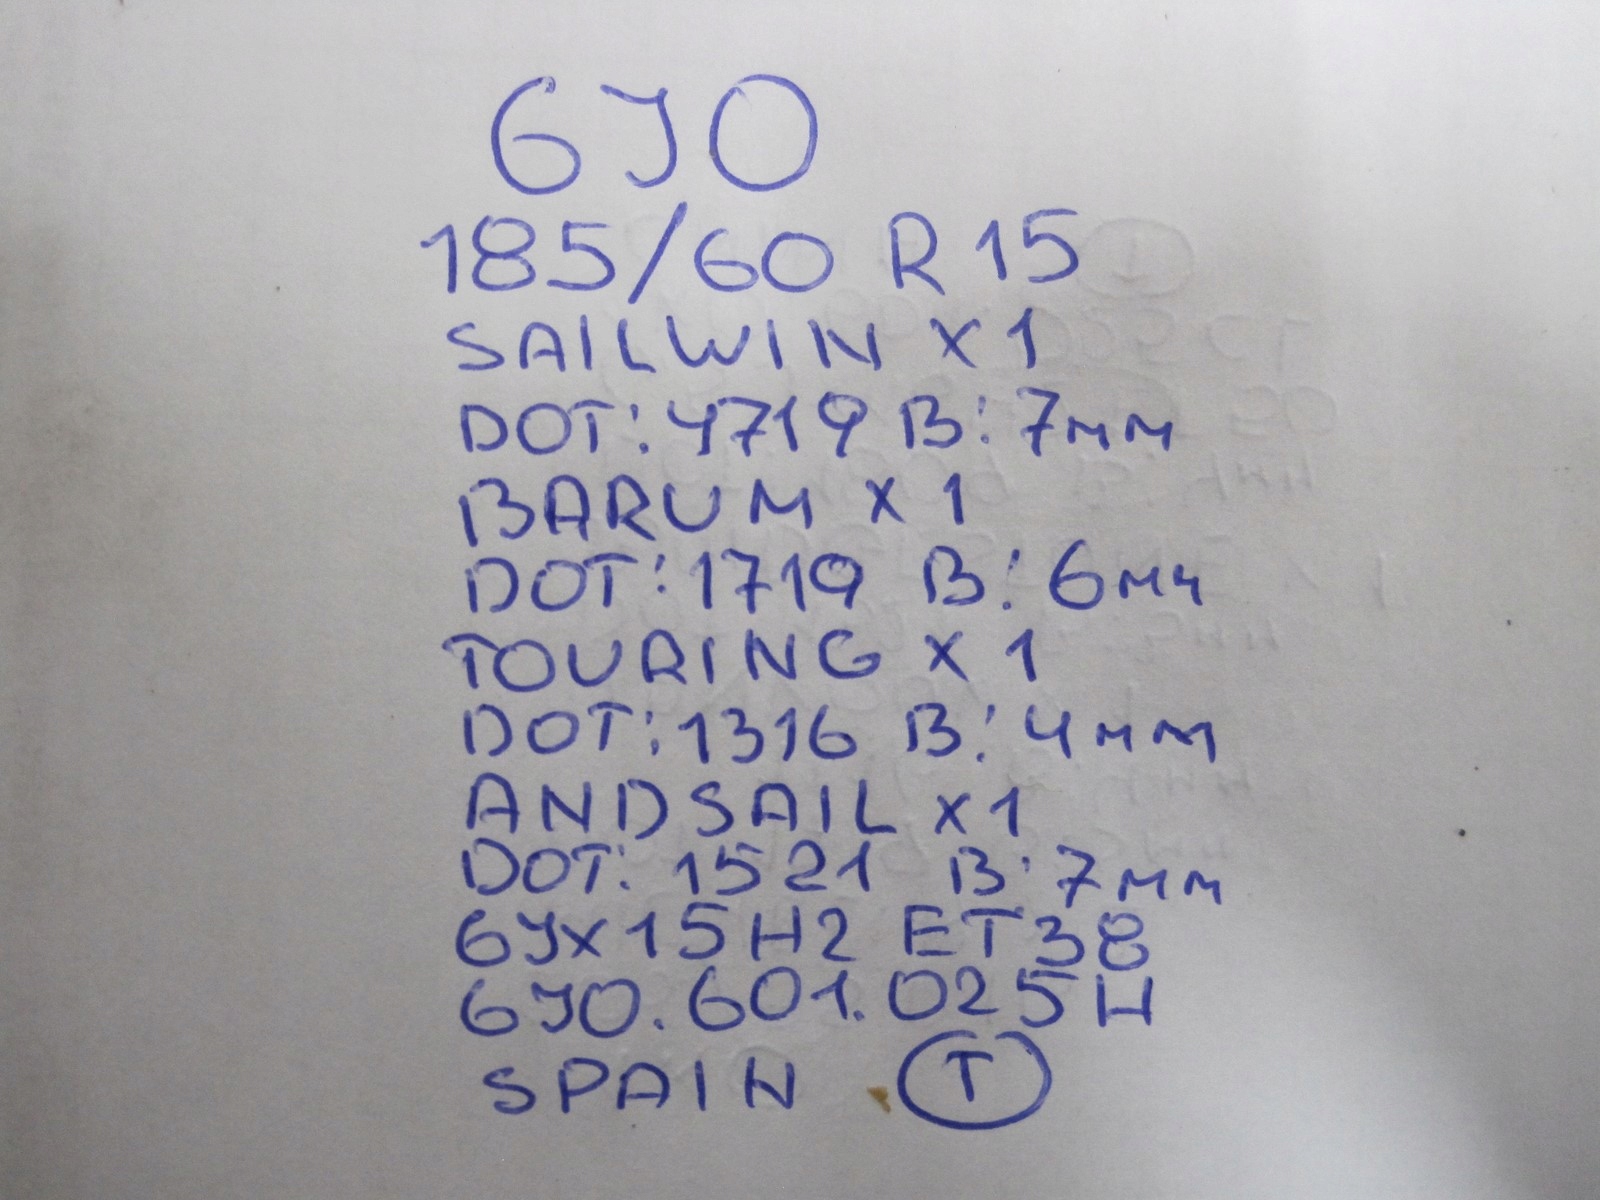 6J0
185/60 R15
SAILWIN x1
DOT: 4719 B: 7мм
BARUM x1
DOT: 1719 B: 6мм
TOURING x1
DOT: 1316 B: 4мм
ANDSAIL x1
DOT: 1521 B: 7мм
6Jx15H2 ET38
6J0.601.025H
SPAIN T